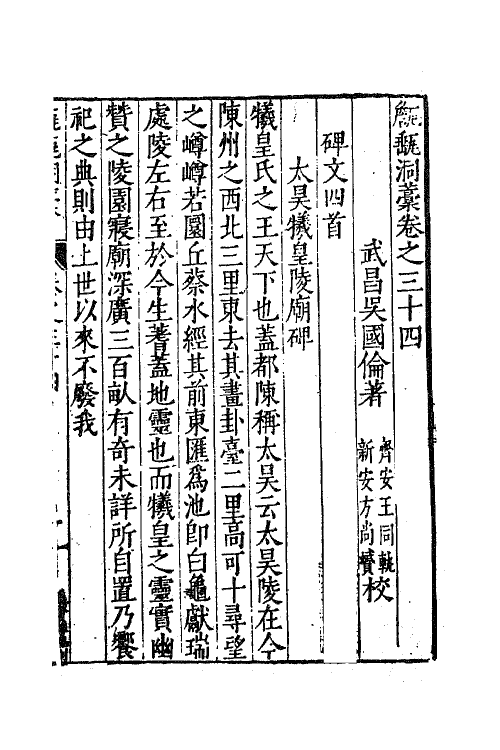 甔甀洞藁卷之三十四
武昌吳國倫著
齊安王同軌
新安方尚贇校
碑文四首
太昊犧皇陵廟碑
犧皇氏之王天下也蓋都陳稱太昊云太昊陵在今
陳州之西北三里東去其畫卦臺二里高可十尋望
之嶟嶟若圜丘蔡水經其前東匯爲池卽白龜獻瑞
處陵左右至於今生蓍蓋地靈也而犧皇之靈實幽
贊之陵園寢廟深廣三百畝有奇未詳所自置乃饗
祀之典則由上世以來不廢我